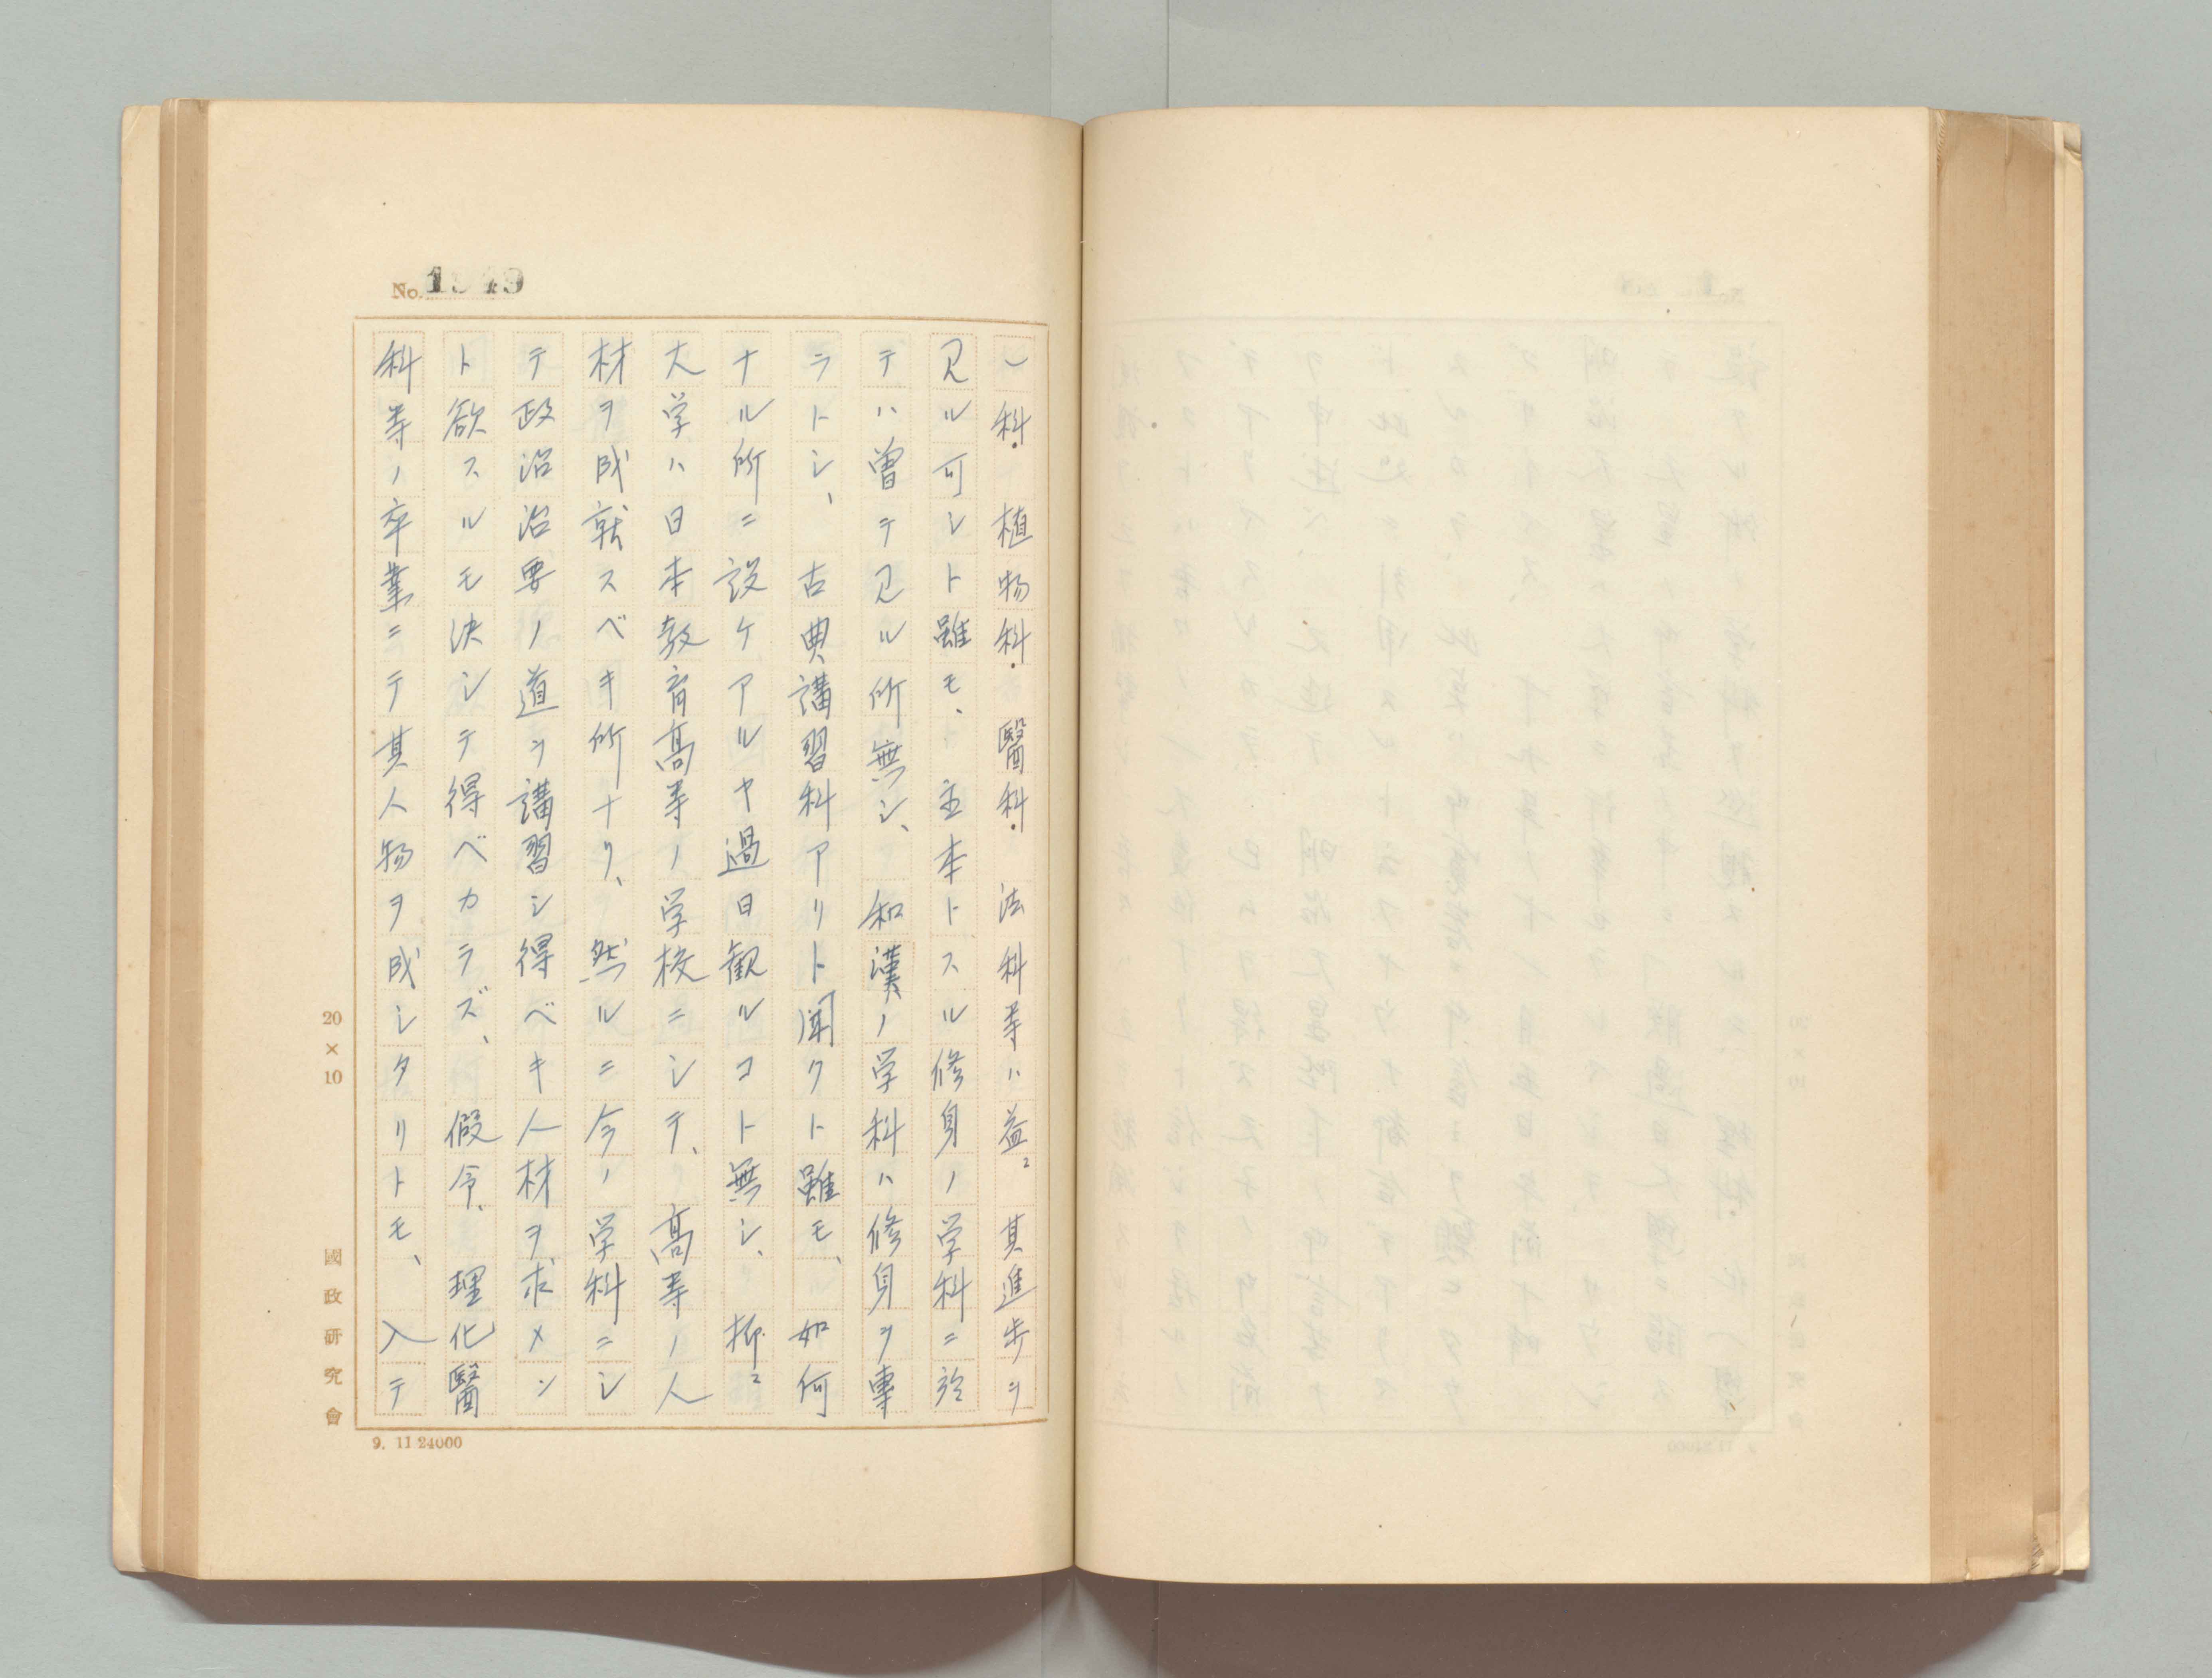 No. 1949
ヽ科．植物科．醫科．法科等ハ益〻其進歩ヲ
見ル可シト雖モ、主本トスル修身ノ学科ニ於
テハ曽テ見ル所無シ、和漢ノ学科ハ修身ヲ専
ラトシ、古典講習科アリト聞クト雖モ、如何
ナル所ニ設ケアルヤ過日観ルコト無シ、抑〻
大学ハ日本教育高等ノ学校ニシテ、高等ノ人
材ヲ成就スベキ所ナリ、然ルニ今ノ学科ニシ
テ政治治要ノ道ヲ講習シ得ベキ人材ヲ求メン
ト欲スルモ決シテ得ベカラズ、假令、理化醫
科等ノ卒業ニテ其人物ヲ成シタリトモ、入テ
20×10
國政研究會
9. 11 24000